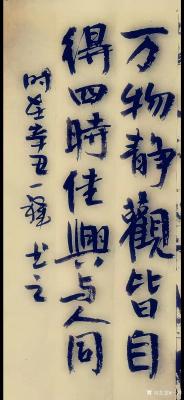 万物静觀皆自
得四時佳興与人同
时在辛丑一穗书之